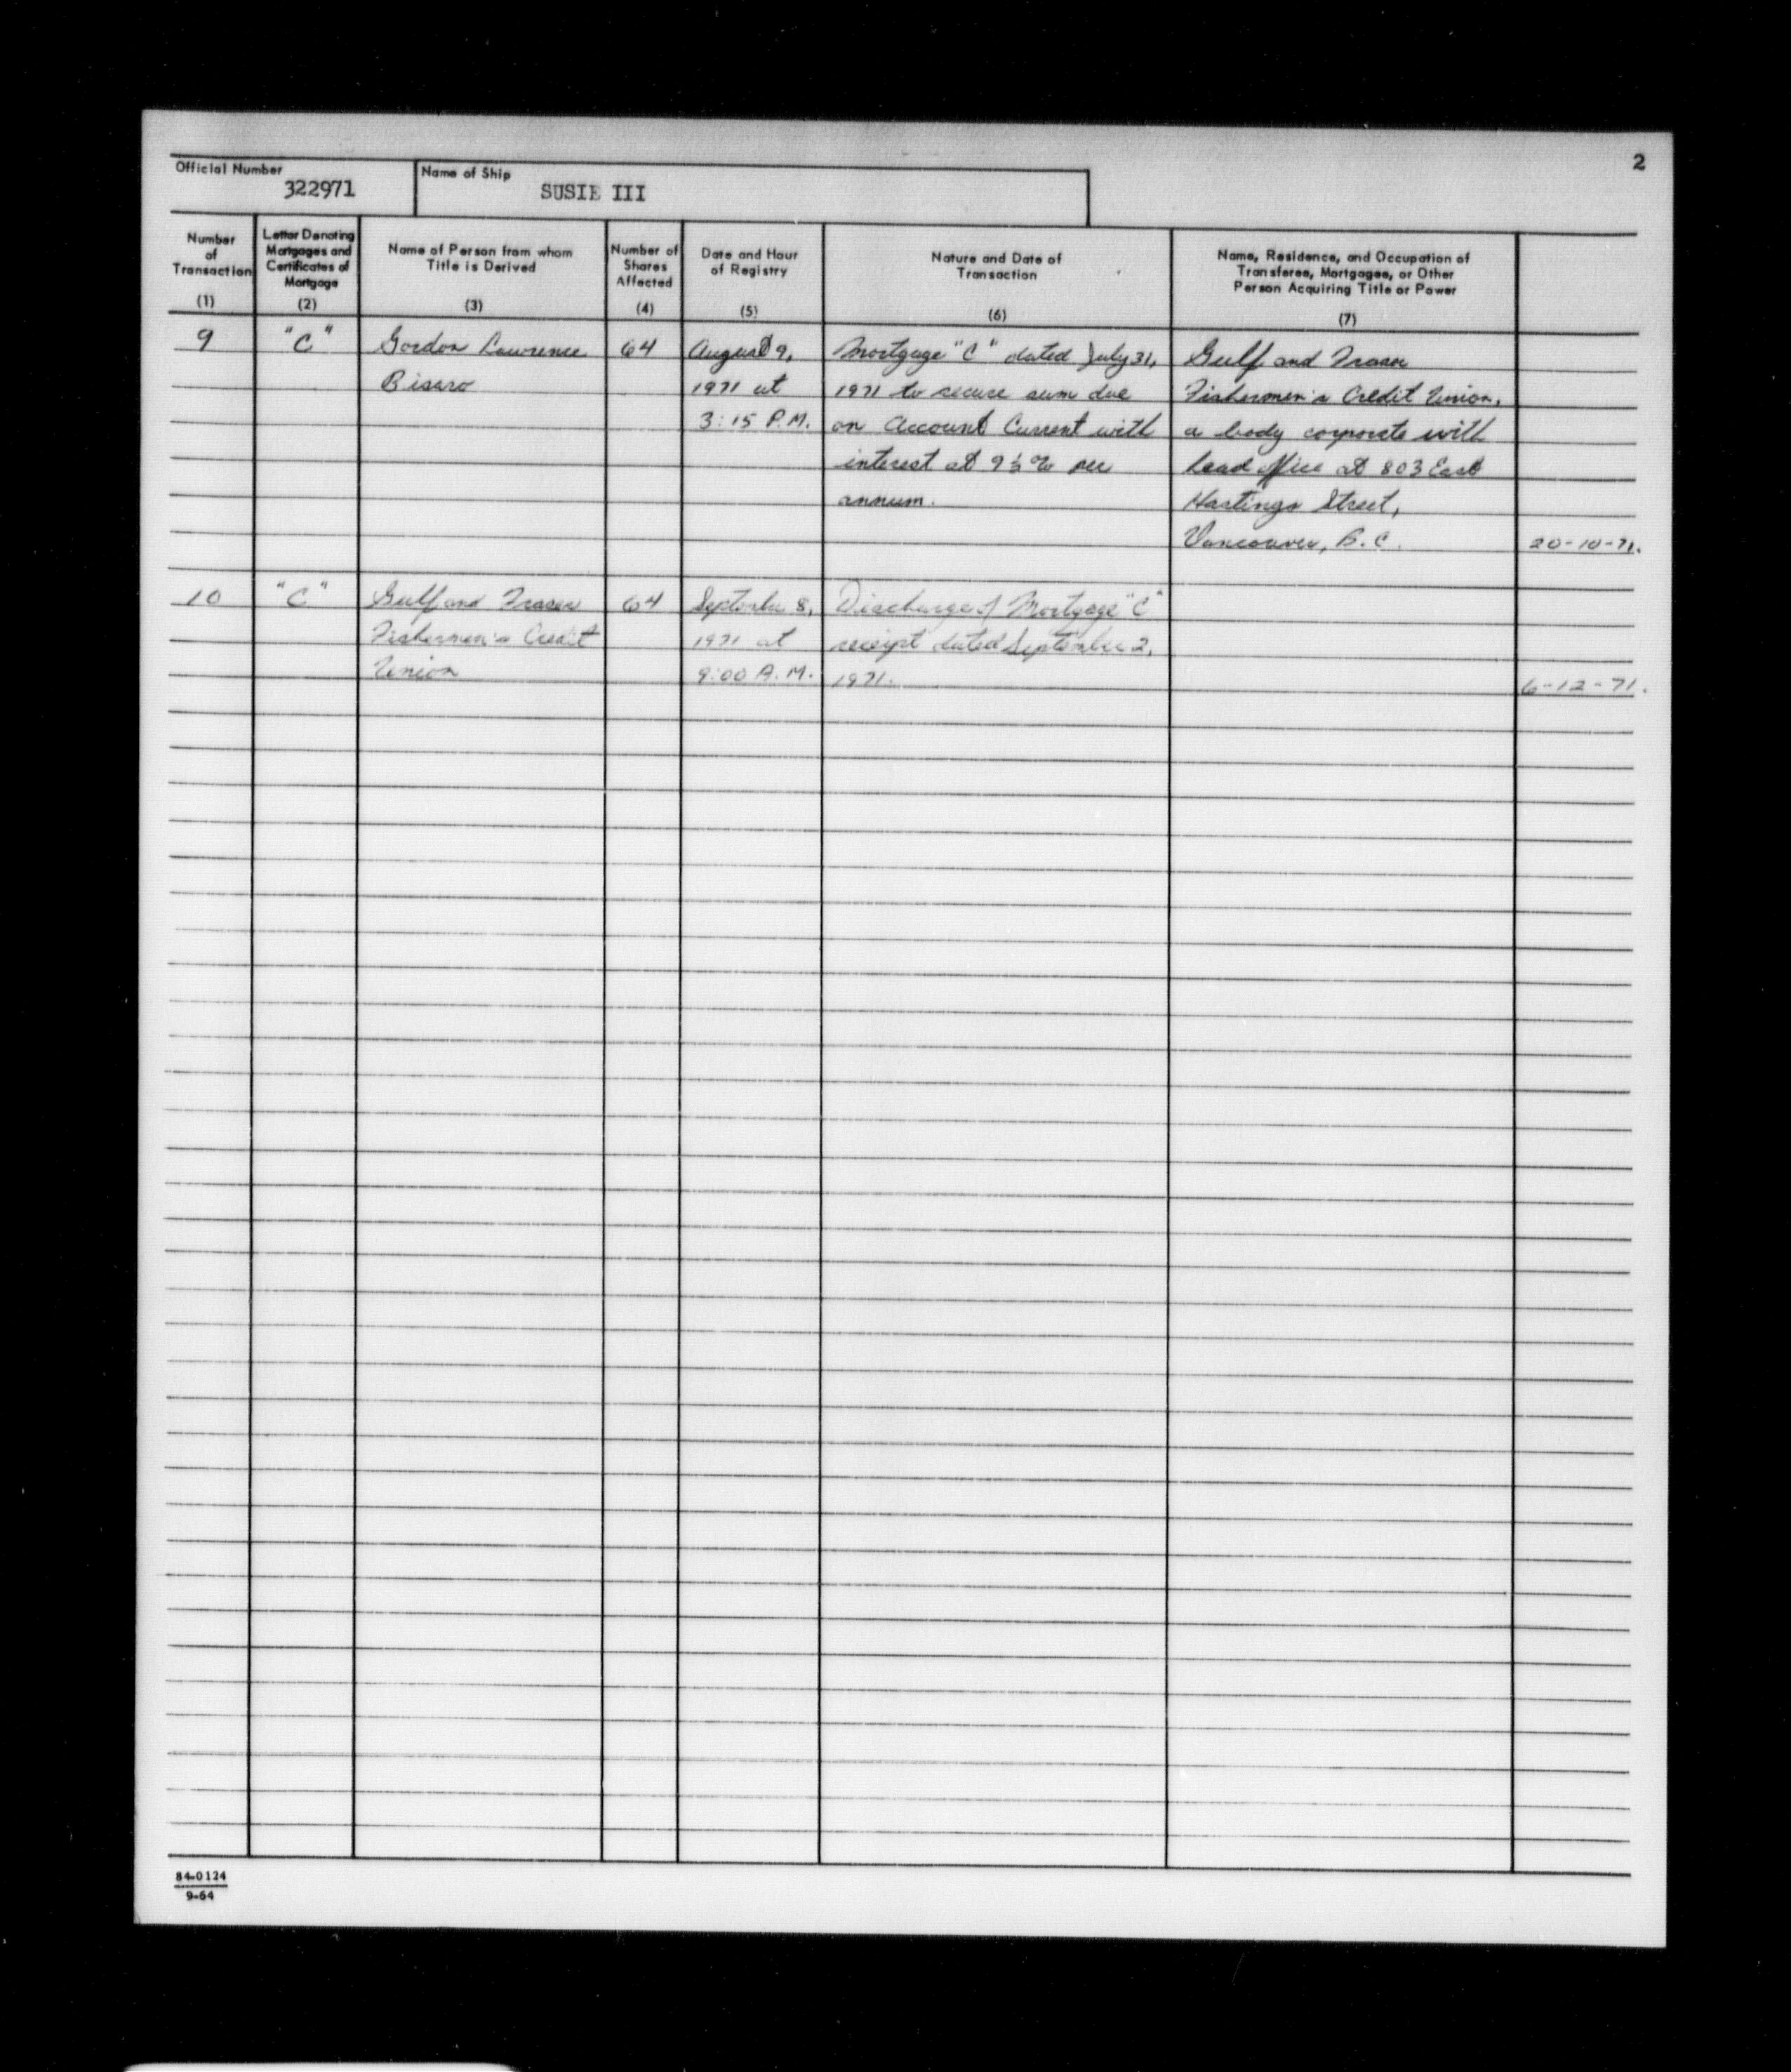 2
Official Number
322971
Name of Ship
SUSIE III
Number
of
Transaction
(1)
Letter Denoting
Mortgages and
Certificates of
Mortgage
(2)
Name of Person from whom
Title is Derived
(3)
Number of
Shares
Affected
(4)
Date and Hour
of Registry
(5)
Nature and Date of
Transaction
(6)
Name, Residence, and Occupation of
Transferee, Mortgagee, or Other
Person Acquiring Title or Power
(7)
9
"C"
Gordon Lawrence
Bisaro
64
August 9,
1971 at
3:15 P.M.
Mortgage "C" dated July 31,
1971 to secure sum due
on Account Current with
interest at 9½% per
annum.
Gulf and Fraser
Fishermen's Credit Union,
a body corporate with
head office at 803 East
Hastings Street,
Vancouver, B.C.
20-10-71.
10
"C"
Gulf and Fraser
Fishermen's Credit
Union
64
September 8,
1971 at
9:00 A.M.
Discharge of Mortgage "C"
receipt dated September 2,
1971.
6-12-71.
84-0124
9-64